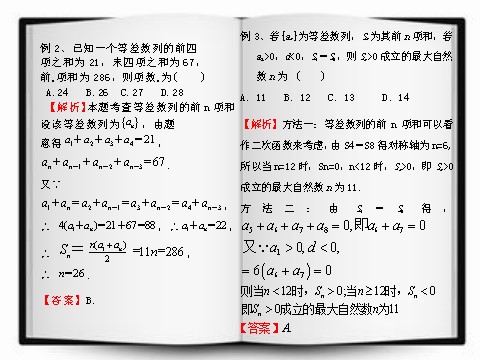 例2、已知一个等差数列的前四
项之和为21，末四项之和为67，
前n项和为286，则项数n为(    )
A. 24    B. 26    C. 27    D. 28
【解析】本题考查等差数列的前n项和
设该等差数列为{aₙ}，由题
意得a₁+a₂+a₃+a₄=21，
aₙ+aₙ₋₁+aₙ₋₂+aₙ₋₃=67.
又∵
a₁+aₙ=a₂+aₙ₋₁=a₃+aₙ₋₂=a₄+aₙ₋₃，
∴ 4(a₁+aₙ)=21+67=88，∴a₁+aₙ=22，
∴ Sₙ=n(a₁+aₙ)/2=11n=286，
∴ n=26.
【答案】B.
例3、若{aₙ}为等差数列，Sₙ为其前n项和，若
a₁>0，d<0，S₄=S₈，则Sₙ>0成立的最大自然
数n为 (    )
A. 11    B. 12    C. 13    D. 14
【解析】方法一：等差数列的前n项和可以看
作二次函数来考虑,由S4=S8得对称轴为n=6,
所以当n=12时, Sn=0, n<12时, Sₙ>0, 即Sₙ>0
成立的最大自然数n为11.
方法二：由S₄=S₈得，
a₅+a₆+a₇+a₈=0,即a₆+a₇=0
又∵a₁>0,d<0,
=6(a₆+a₇)=0
则当n<12时，Sₙ>0;当n≥12时，Sₙ<0
即Sₙ>0成立的最大自然数n为11
【答案】A.